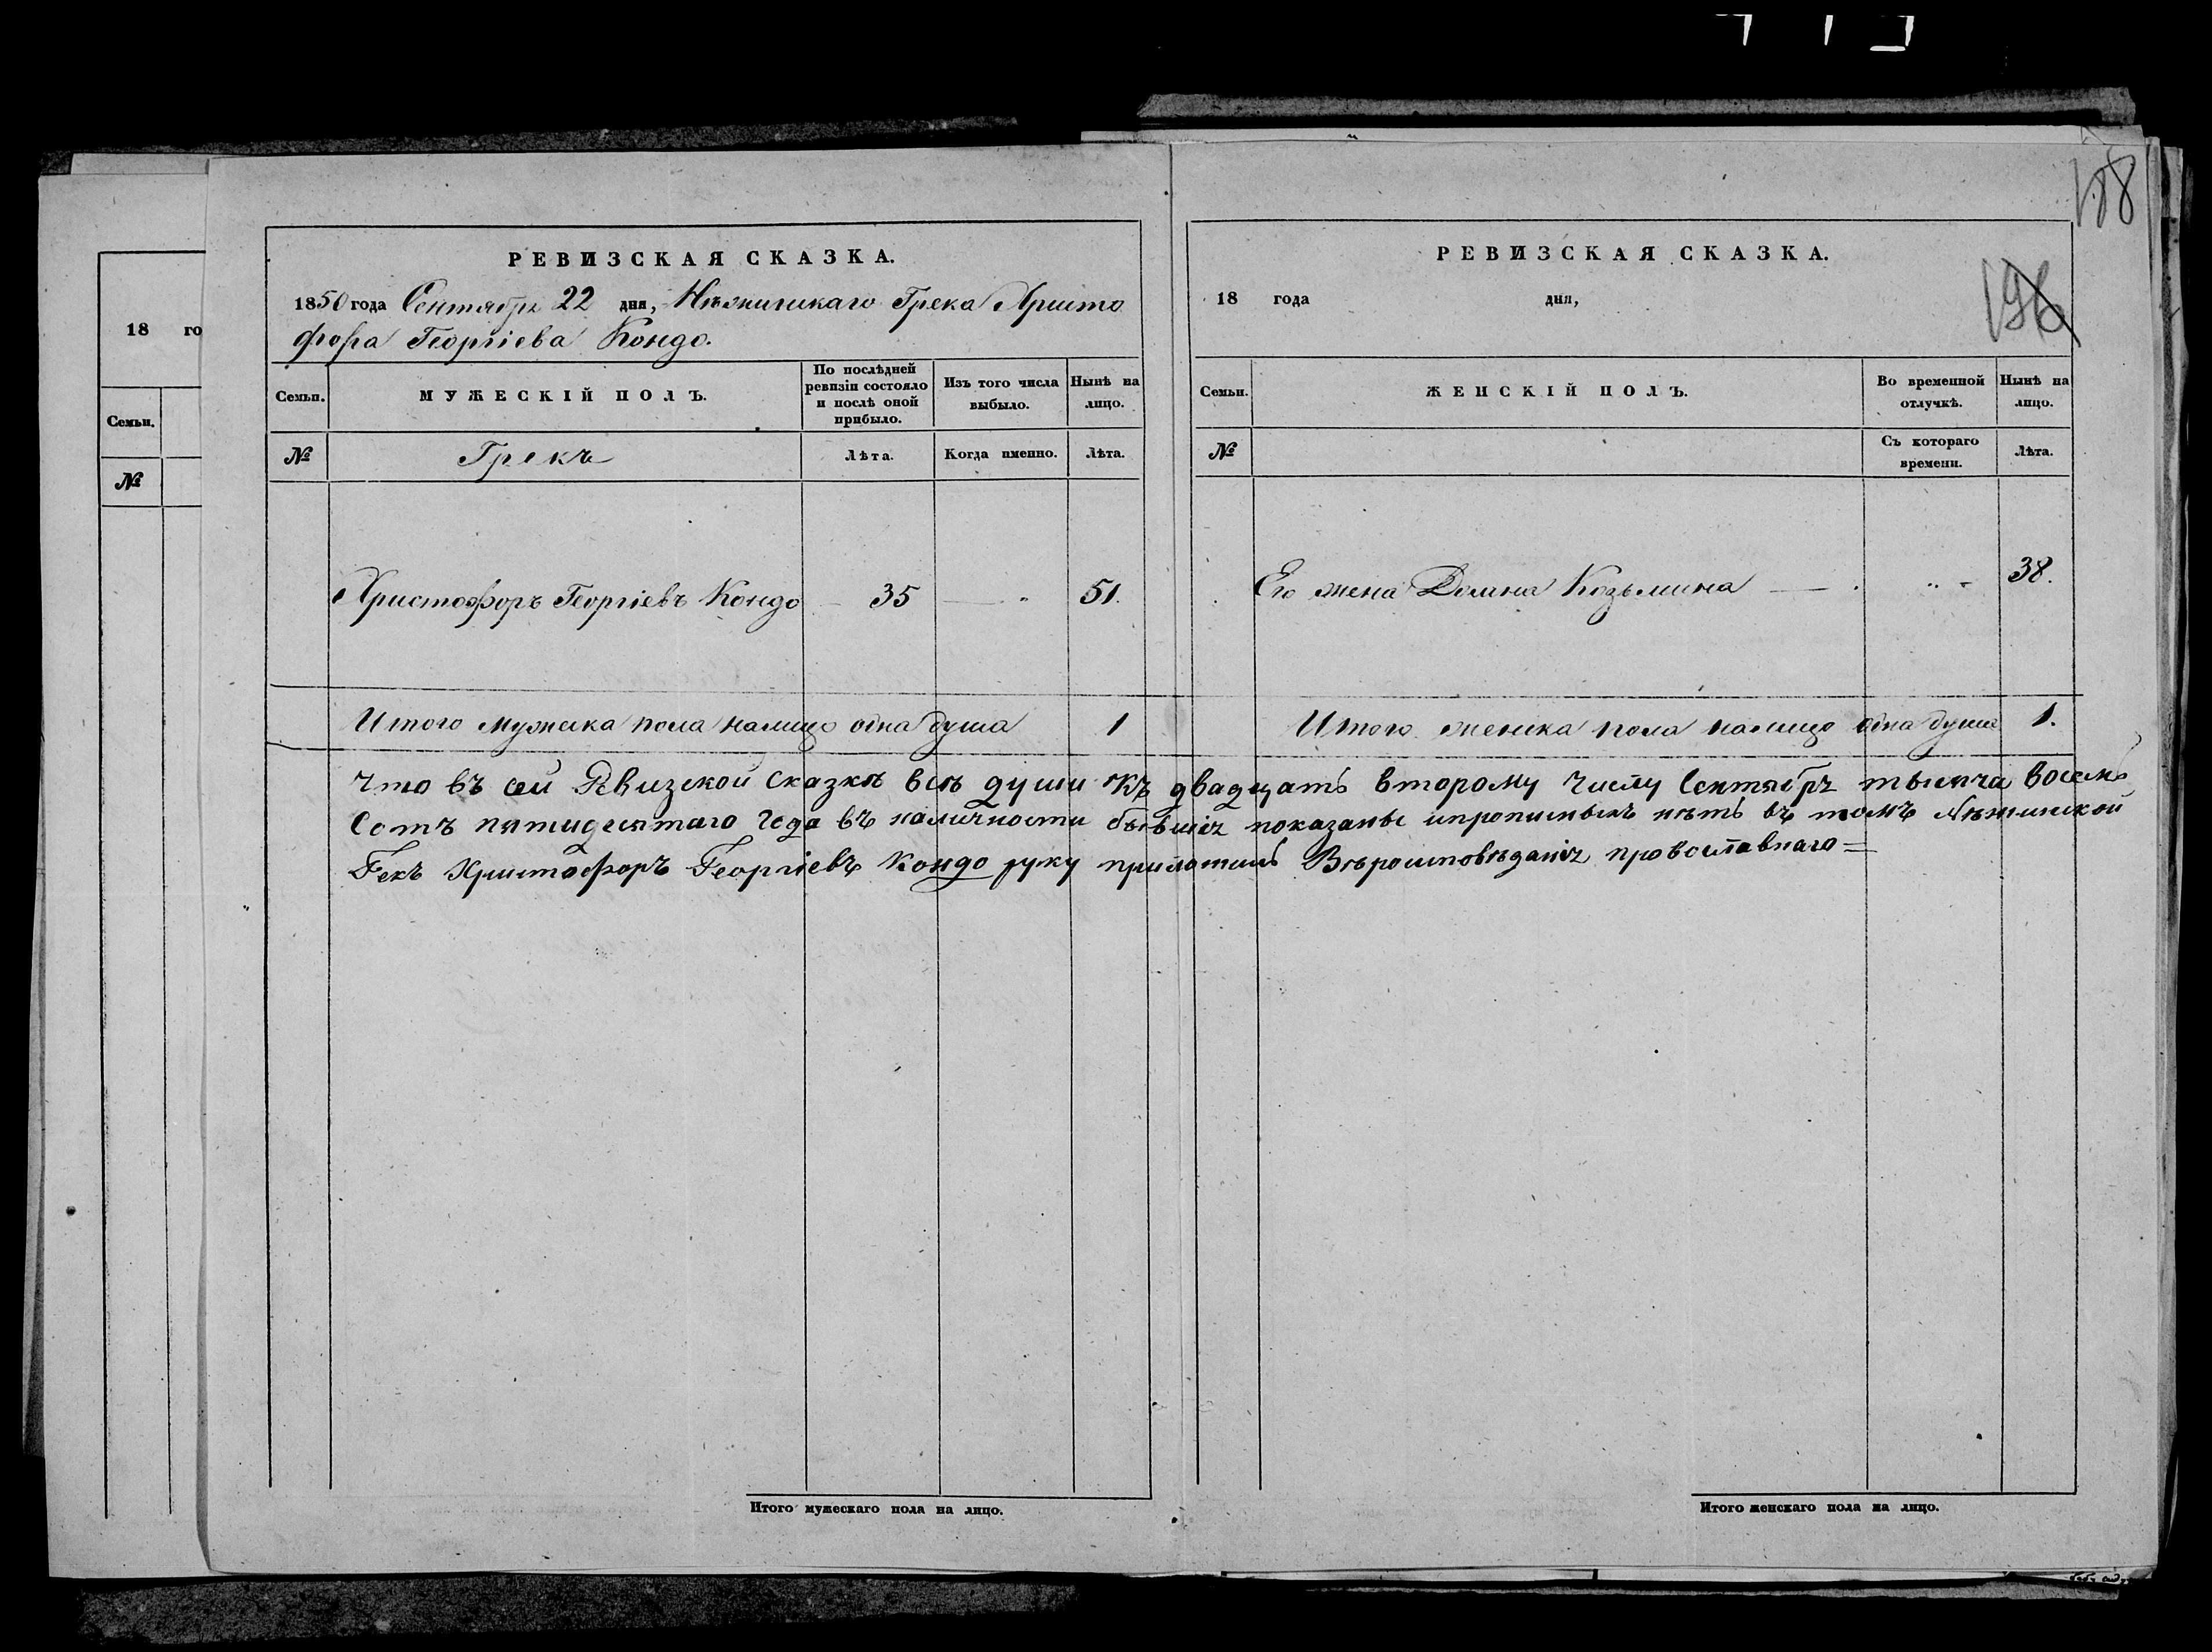 188
18 го
Семьи.
№
РЕВИЗСКАЯ СКАЗКА.
1850 года Сентября 22 дня, Нѣжинскаго Грека Христо
фора Георгіева Кондо.
Семьи. МУЖЕСКІЙ ПОЛЪ. По послѣдней ревизіи состояло и послѣ оной прибыло. Изъ того числа выбыло. Нынѣ на лицо.
№ Грекъ Лѣта. Когда именно. Лѣта.
Христофоръ Георгіевъ Кондо — 35 — " 51.
Итого мужеска пола налицо одна душа 1
РЕВИЗСКАЯ СКАЗКА.
18 года дня,
196
Семьи. ЖЕНСКІЙ ПОЛЪ. Во временной отлучкѣ. Нынѣ на лицо.
№ Съ котораго времени. Лѣта.
Его жена Козьмина — " - 38.
Итого женска пола налицо одна душа 1.
Что въ сей Ревизской сказкѣ всѣ души къ двадцать второму числу Сентября тысяча восемь
Сотъ пятидесятаго года въ наличности бывшія показаны ипрописныхъ нѣтъ въ томъ Нѣжинской
Гекъ Христофоръ Георгіевъ Кондо руку приложилъ Вѣроисповѣданія православнаго =
Итого мужескаго пола на лицо.
Итого женскаго пола на лицо.